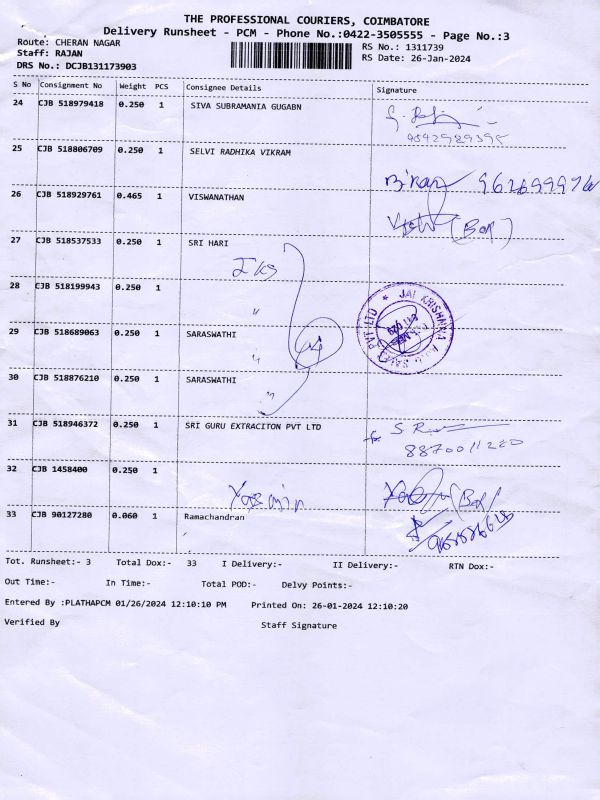 THE PROFESSIONAL COURIERS, COIMBATORE
Delivery Runsheet - PCM - Phone No.:0422-3505555 - Page No.:3
Route: CHERAN NAGAR RS No.: 1311739
Staff: RAJAN RS Date: 26-Jan-2024
DRS No.: DCJB131173903
S No Consignment No Weight PCS Consignee Details Signature
24 CJB 518979418 0.250 1 SIVA SUBRAMANIA GUGABN
25 CJB 518806709 0.250 1 SELVI RADHIKA VIKRAM
26 CJB 518929761 0.465 1 VISWANATHAN
(Box)
27 CJB 518537533 0.250 1 SRI HARI
28 CJB 518199943 0.250 1
"
29 CJB 518689063 0.250 1 SARASWATHI
"
30 CJB 518876210 0.250 1 SARASWATHI
"
31 CJB 518946372 0.250 1 SRI GURU EXTRACITON PVT LTD
for S.R
32 CJB 1458400 0.250 1
Yasmin (Box)
33 CJB 90127280 0.060 1 Ramachandran
Tot. Runsheet:- 3 Total Dox:- 33 I Delivery:- II Delivery:- RTN Dox:-
Out Time:- In Time:- Total POD:- Delvy Points:-
Entered By :PLATHAPCM 01/26/2024 12:10:10 PM Printed On: 26-01-2024 12:10:20
Verified By Staff Signature